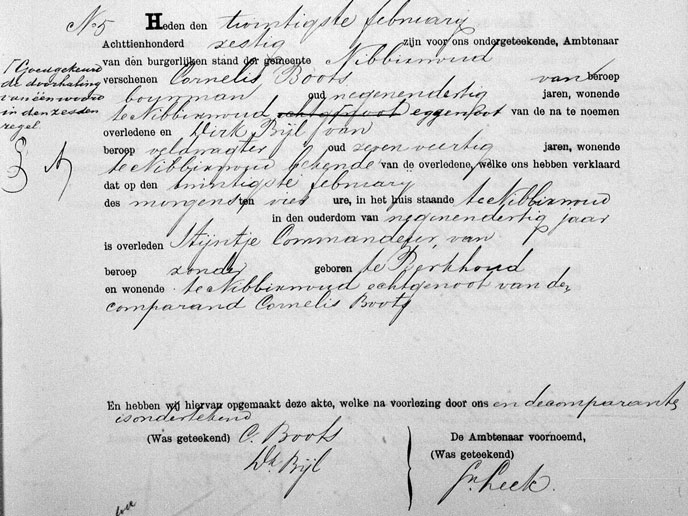 No 5 Heden den twintigste february
Achttienhonderd zestig zijn voor ons ondergeteekende, Ambtenaar
van den burgerlijken stand der gemeente Nibbixwoud
verschenen Cornelis Boots van beroep
bouwman oud negenendertig jaren, wonende
te Nibbixwoud echtgenoot van de na te noemen
overledene en Dirk Bijl van
beroep veldwagter oud zeven veertig jaren, wonende
te Nibbixwoud bekende van de overledene, welke ons hebben verklaard
dat op den twintigste february
des morgens ten vier ure, in het huis staande te Nibbixwoud
in den ouderdom van negenendertig jaar
is overleden Stijntje Commandeur, van
beroep zonder geboren te Berkhoud
en wonende te Nibbixwoud echtgenoot van de
comparand Cornelis Boots
Goedgekeurd
de doorhaling
van één woord
in den zesden
regel
En hebben wij hiervan opgemaakt deze akte, welke na voorlezing door ons en de comparante
is onderteekend
(Was geteekend) C. Boots
Dk Bijl
De Ambtenaar voornoemd,
(Was geteekend)